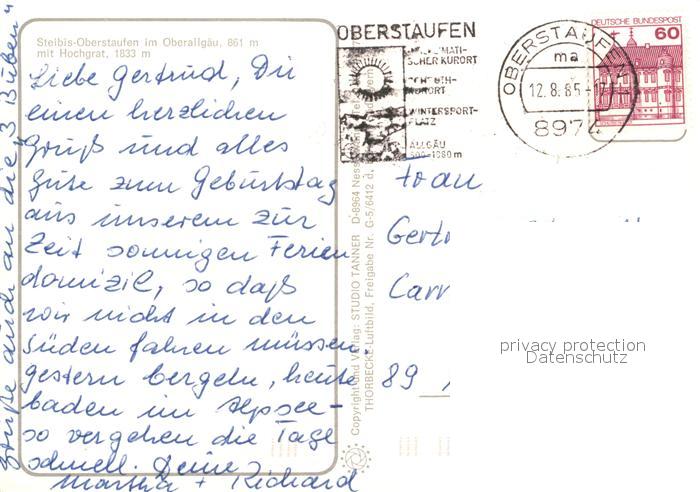 Steibis-Oberstaufen im Oberallgäu, 861 m
mit Hochgrat, 1833 m
Liebe Gertrud, Dir
einen herzlichen
Gruß und alles
Gute zum Geburtstag
aus unserem zur
Zeit sonnigen Ferien
domizil, so daß
wir nicht in den
Süden fahren müssen.
Gestern bergeln, heute
baden im Alpsee -
so vergehen die Tage
schnell. Deine
Martha + Richard
Grüße auch an die 3 Buben"
Copyright und Verlag: STUDIO TANNER D-8964 Ness
THORBECKE-Luftbild, Freigabe Nr. G-5/6412 d.
OBERSTAUFEN
SCHER KURORT
WINTERSPORT-
PLATZ
ALLGÄU
OBERSTAUFEN
ma
12.8.85-17
897
DEUTSCHE BUNDESPOST
60
Frau
Gert
Carr
89
privacy protection
Datenschutz